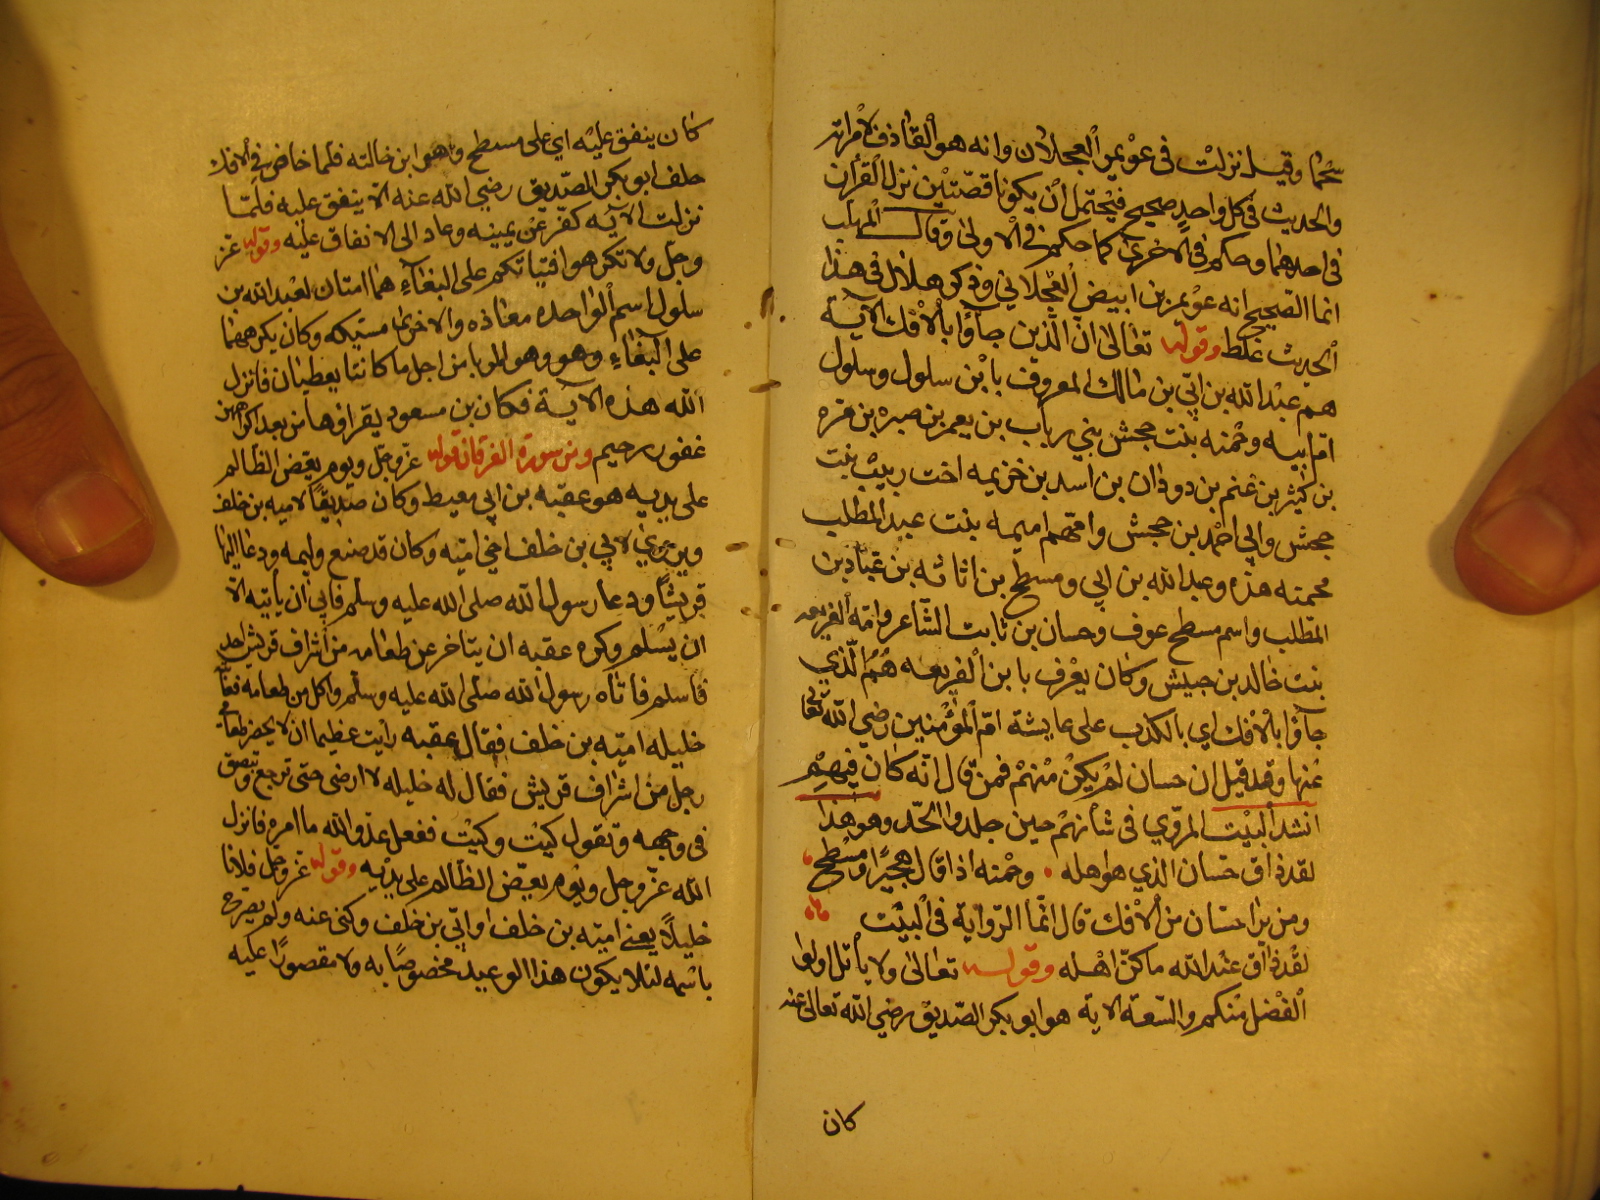 سحما وقيل نزلت في عويمر العجلان وانه هو القاذف لامراته
والحديث في كل واحد صحيح فيحتمل أن يكونا قصّتين نزل القرآن
في احدهما وحكم في الاخرى كما حكم في الاولى وقال المهلب
انما الصحيح انه عويمر بن ابيض العجلاني وذكر هلال في هذا
الحديث غلط وقوله تعالى ان الّذين جآؤا بالافك الآية
هم عبد الله بن ابيّ بن مالك المعروف بابن سلول وسلول
امّ ابيه وحمنه بنت جحش بني رباب بن يعمر بن صبره بن مره
بن كثير بن غنم بن دودان بن اسد بن خزيمه اخت زينب بنت
جحش وابي احمد بن جحش وامّهم اميمه بنت عبد المطلب
فحمنه هذه وعبد الله بن ابي ومسطح بن اثاثه بن عبّاد بن
المطّلب واسم مسطح عوف وحسان بن ثابت الشاعر وامّه الفريعه
بنت خالد بن حبيش وكان يعرف بابن الفريعه هم الّذي
جآؤا بالافك اي بالكذب على عايشة امّ المؤمنين رضي الله تعالى
عنها وقد قيل ان حسان لم يكن منهم فمن قال انّه كان فيهم
انشد البيت المروي في شأنهم حين جلدوا الحّد وهو هذا
لقد ذاق حسّان الذي هو اهله وحمنه اذا قال هجيرًا ومسطح
ومن يرا حسّان من الافك قال انّما الرّواية في البيت
لقد ذاق عبد الله ما كنّ اهله وقوله تعالى ولا يأتل اولوا
الفضل منكم والسّعة الاية هو ابو بكر الصّديق رضي الله تعالى عنه
كان
كان ينفق عليه اي على مسطح وهو ابن خالته فلما خاض في الافك
حلف ابو بكر الصّديق رضي الله عنه الّا ينفق عليه فلمّا
نزلت الآيه كفّر عن يمينه وعاد الى الانفاق عليه وقوله عزّ
وجلّ ولا تكرهوا فتياتكم على البغآء هما امتان لعبد الله بن
سلول اسم الواحده معاذه والاخرى مسيكه وكان يكرههما
على البغاء وهو وهو الربا من اجل ما كانتا يعطيان فانزل
الله هذه الآية فكان بن مسعود يقراوها من بعد اكراههن
غفور رحيم ومن سورة الفرقان قوله عزّ وجلّ ويوم يعضّ الظالم
على يديه هو عقبه بن ابي معيط وكان صديقًا لاميه بن خلف
ويروي لابي بن خلف اخي اميّه وكان قد صنع وليمه ودعا اليها
قريشًا ودعا رسول الله صلى الله عليه وسلم فابى ان يأتيه الّا
ان يسلم وكره عقبه ان يتاخر عن طعامه من اشراف قريش احد
فاسلم فاتاه رسول الله صلى الله عليه وسلم واكل من طعامه فعاتبه
خليله اميّه بن خلف فقال عقبه رايت عظيما ان لا يحضر طعامي
رجل من اشراف قريش فقال له خليله لا ارضى حتى ترجع وتبصق
في وجهه وتقول كيت وكيت ففعل عدوّ الله ما امره فانزل
الله عزّ وجل ويوم يعضّ الظالم على يديه وقوله عزّ وجلّ فلانا
خليلًا يعني اميّه بن خلف او ابيّ بن خلف وكنى عنه ولم يصرح
باسمه لئلا يكون هذا الوعيد مخصوصًا به ولا مقصورًا عليه